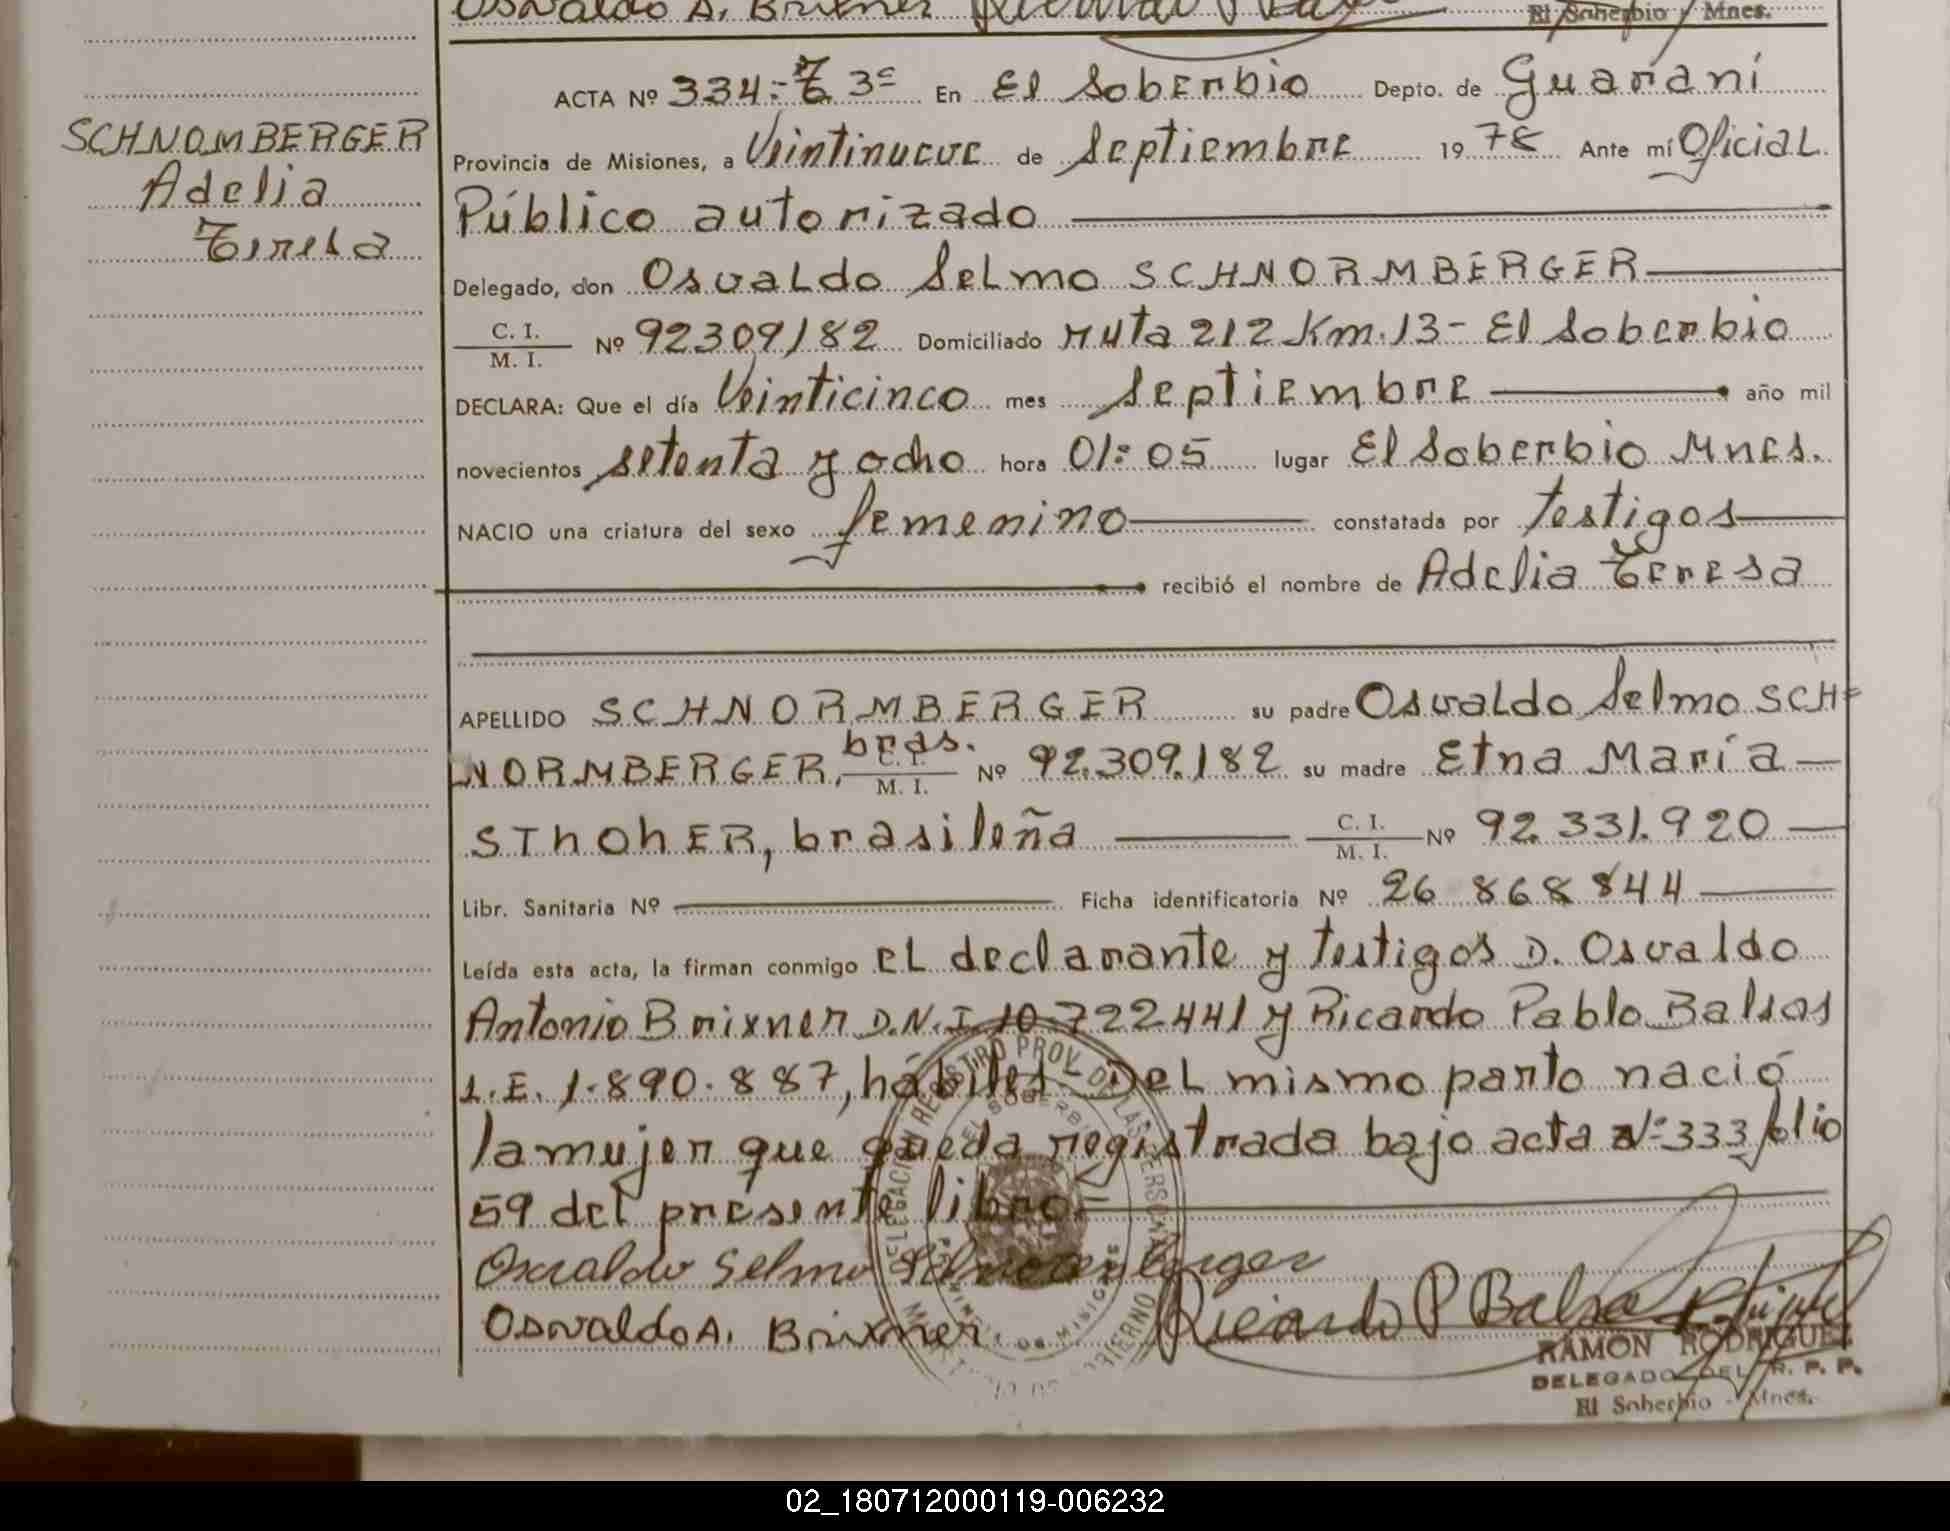 Osvaldo A. Brixner Ricardo P Balsa
El Soberbio Mnes.
ACTA Nº 334-T 3º En El Soberbio Depto. de Guaraní
SCHNOMBERGER
Adelia
Teresa
Provincia de Misiones, a Veintinueve de Septiembre 1978 Ante mí Oficial
Público autorizado
Delegado, don Osvaldo Selmo SCHNORMBERGER
C. I.
M. I. Nº 92309182 Domiciliado ruta 212 Km.13- El Soberbio
DECLARA: Que el día Veinticinco mes Septiembre año mil
novecientos setenta y ocho hora 01:05 lugar El Soberbio Mnes.
NACIO una criatura del sexo femenino constatada por testigos
recibió el nombre de Adelia Teresa
APELLIDO SCHNORMBERGER su padre Osvaldo Selmo SCH=
NORMBERGER, bras. C. I. M. I. Nº 92.309.182 su madre Etna María
SThOhER, brasileña C. I. M. I. Nº 92.331.920
Libr. Sanitaria Nº Ficha identificatoria Nº 26 868 844
Leída esta acta, la firman conmigo el declarante y testigos D. Osvaldo
Antonio Brixner D.N.I. 10 722441 y Ricardo Pablo Balsas
L.E. 1.890.887, hábiles. Del mismo parto nació
la mujer que queda registrada bajo acta Nº 333 folio
59 del presente libro.
Osvaldo Selmo Schnormberger
Osvaldo A. Brixner Ricardo P Balsa
DELEGACION REGISTRO PROV. DE LAS PERSONAS
EL SOBERBIO
PROVINCIA DE MISIONES
RAMON RODRIGUEZ
DELEGADO DEL R. P. P.
El Soberbio - Mnes.
02_180712000119-006232